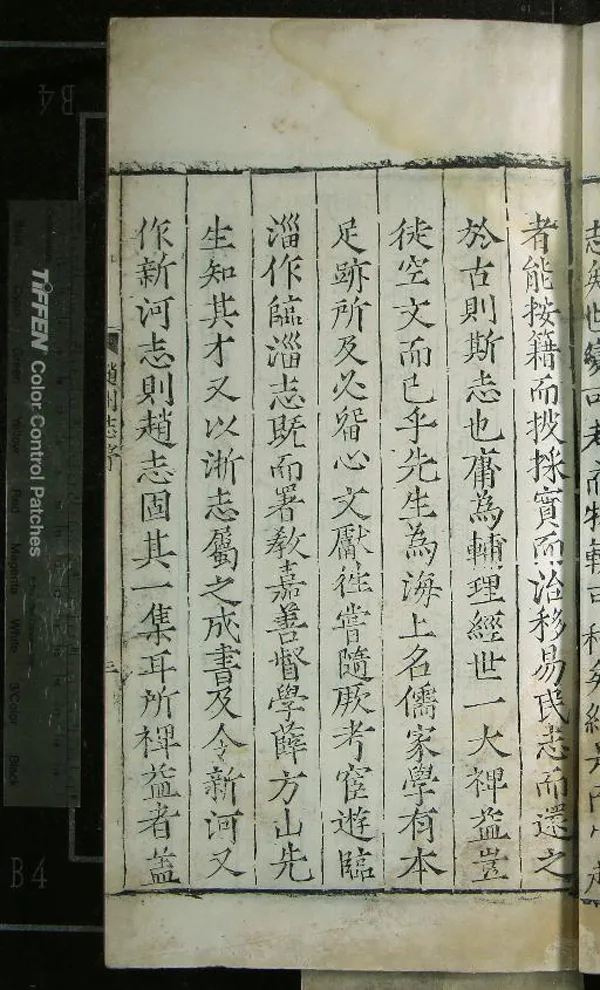 者能按籍而披採實而治移易民志而還之
於古則斯志也庸為輔理經世一大裨益豈
徒空文而已乎先生為海上名儒家學有本
足跡所及必畱心文獻徃嘗隨厥考宦遊臨
淄作臨淄志既而署教嘉善督學薛方山先
生知其才又以浙志屬之成書及令新河又
作新河志則趙志固其一集耳所裨益者蓋
趙州志序
三
TIFFEN Color Control Patches
B4
B4